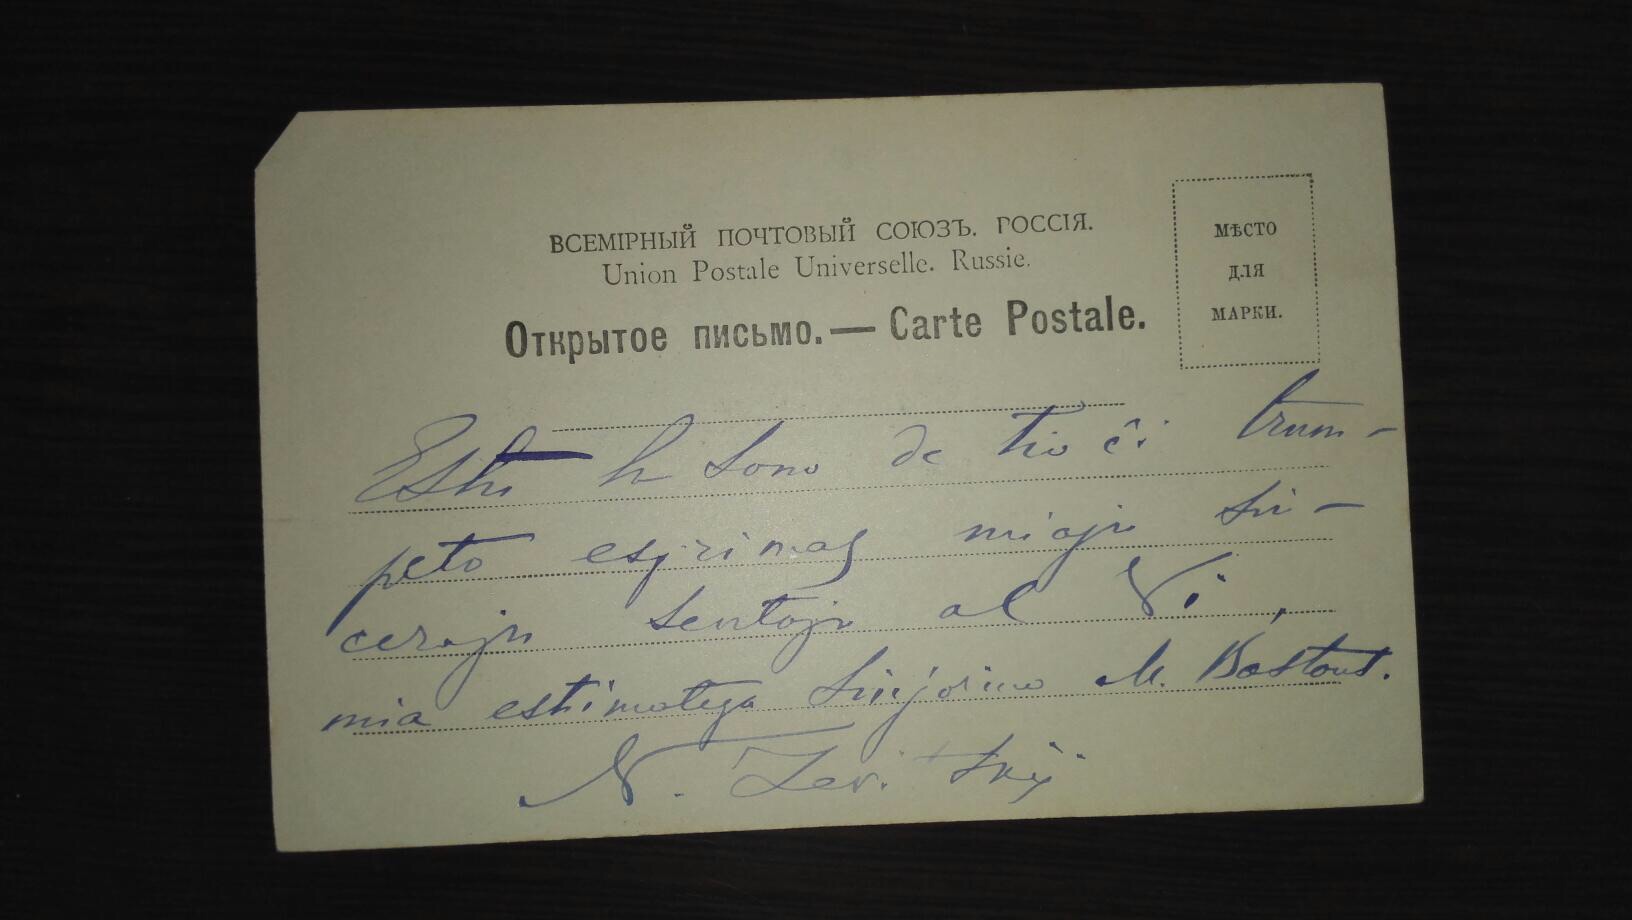 ВСЕМІРНЫЙ ПОЧТОВЫЙ СОЮЗЪ. РОССІЯ.
Union Postale Universelle. Russie.
Открытое письмо. — Carte Postale.
МѢСТО
ДЛЯ
МАРКИ.
sono de tio ĉi trum-
peto esprimas miajn sin-
cerajn sentojn al Vi,
mia estimatega Sinjorino M.
N.